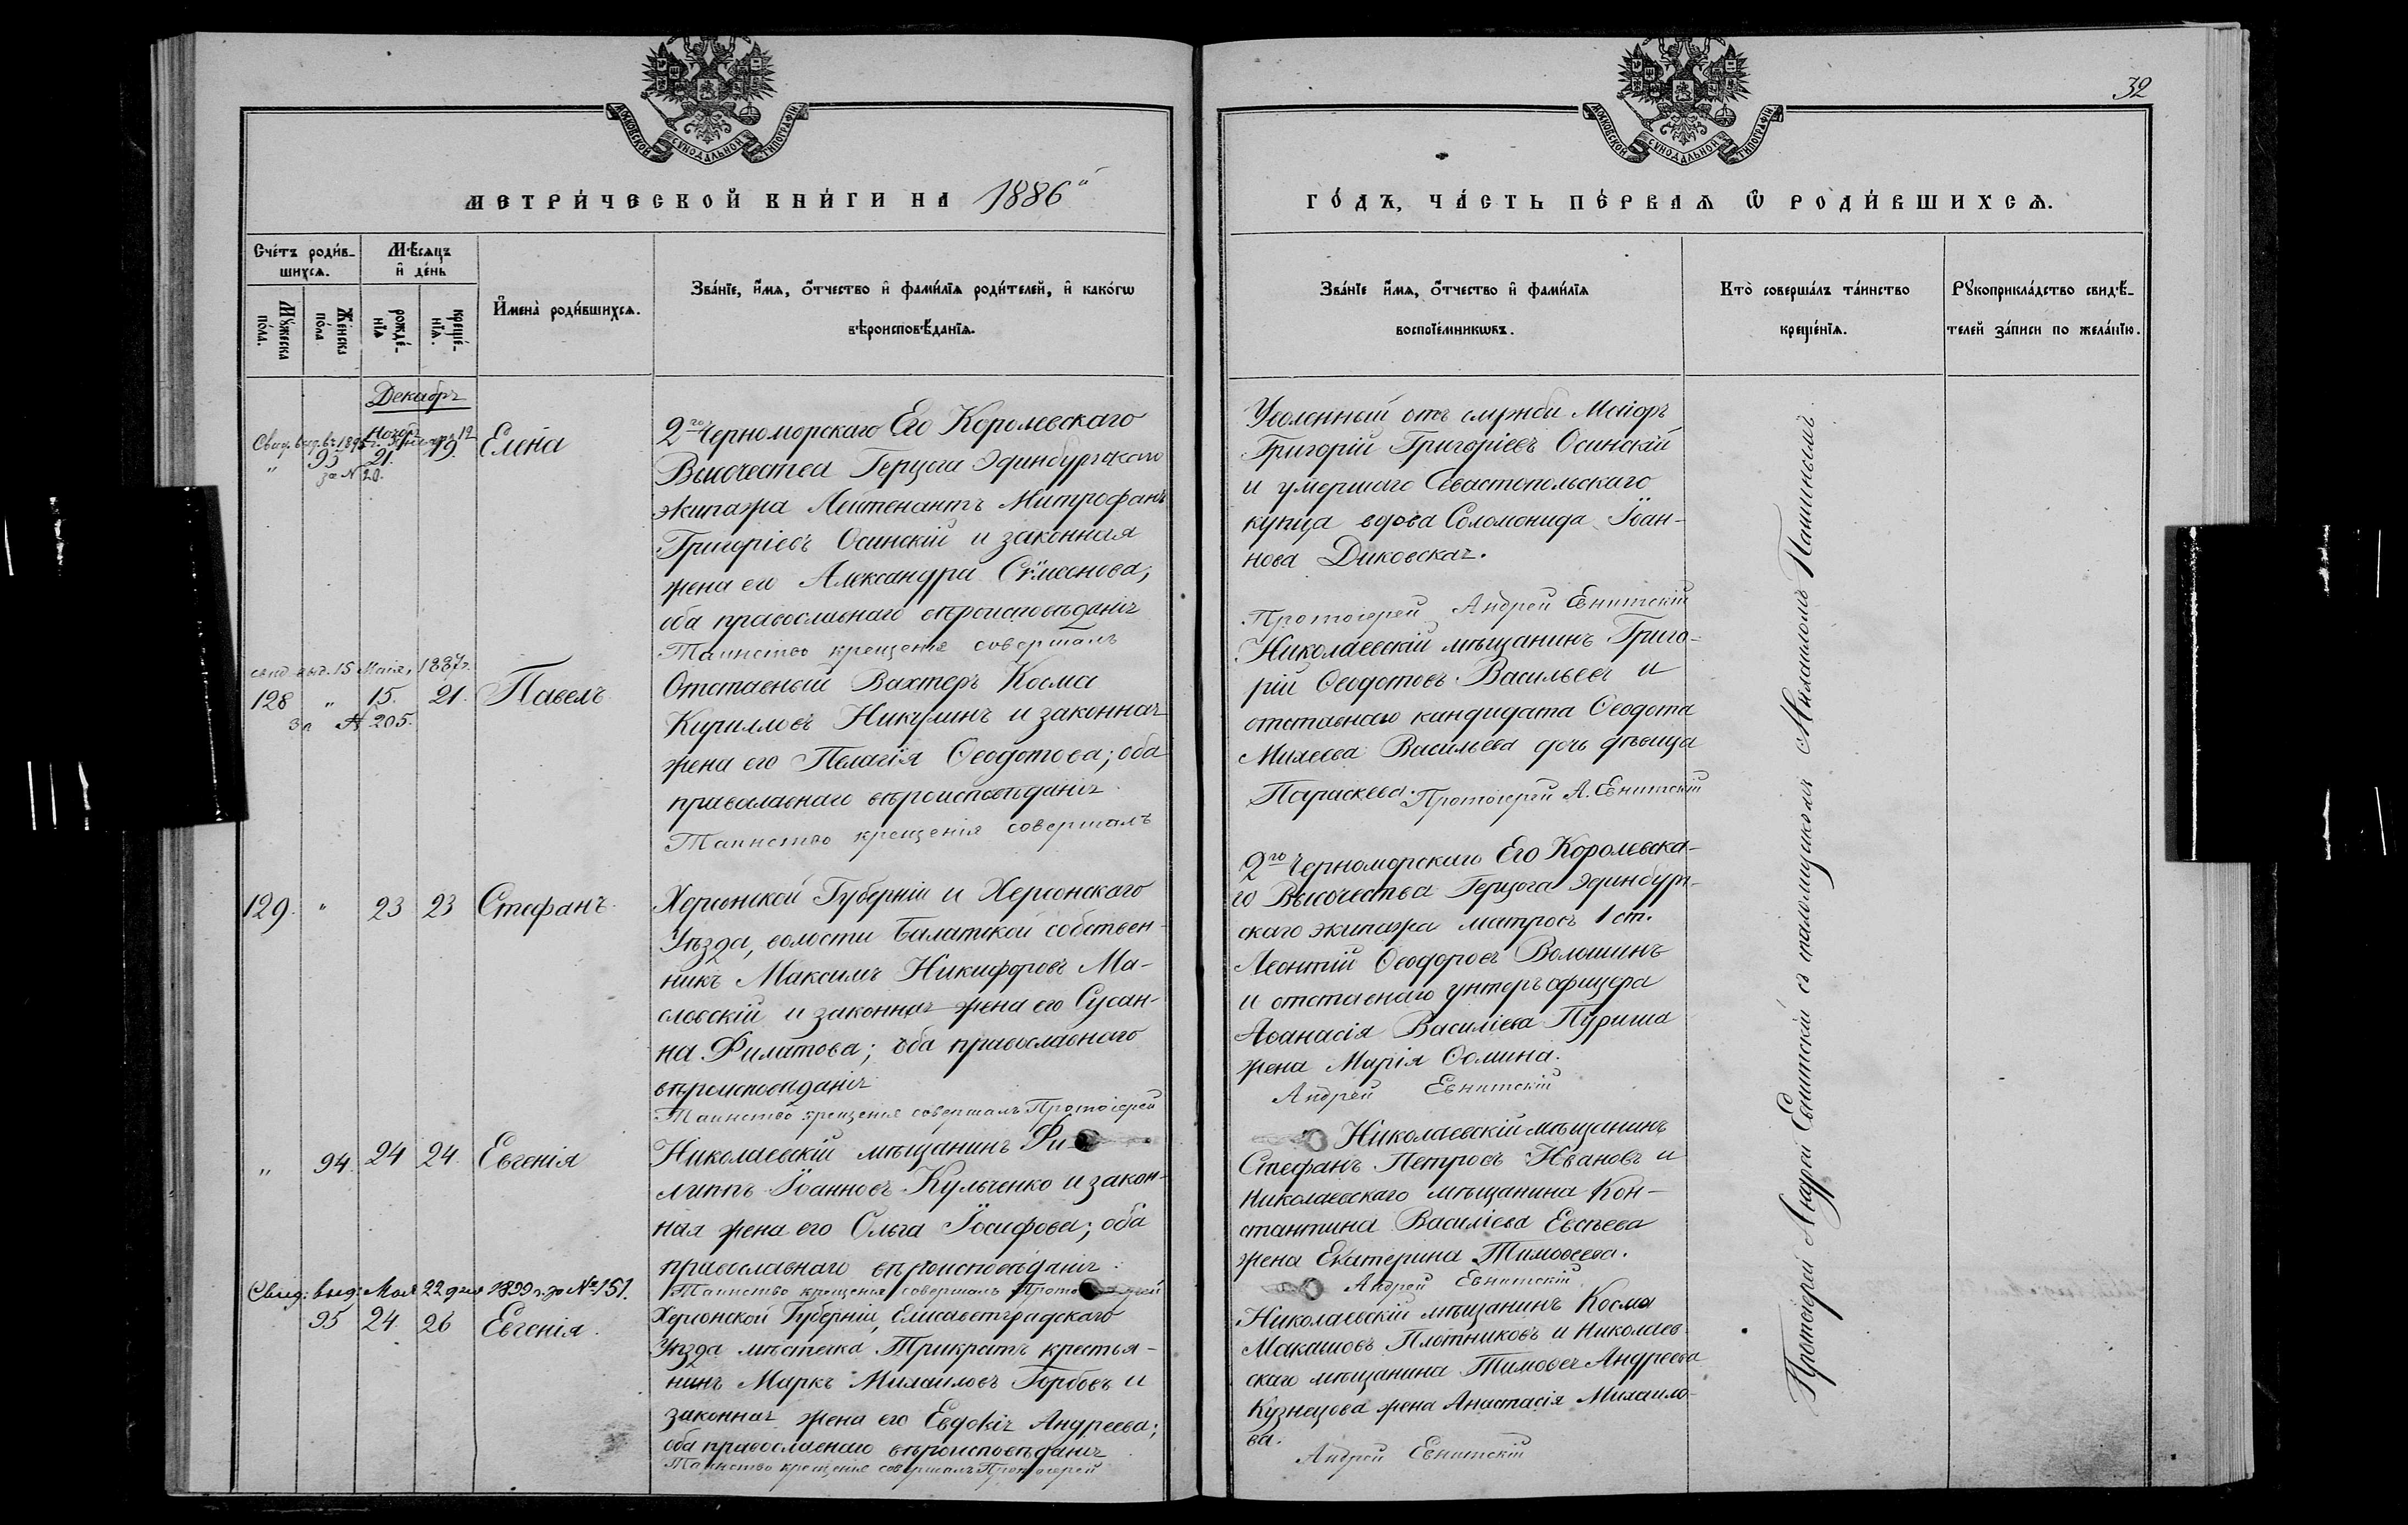 МОСКОВСКОЙ СѴНОДАЛЬНОЙ ТИПОГРАФІИ
МЕТРИ́ЧЕСКОЙ КНИ́ГИ НА 1886й
Сче́тъ роди́в-
шихся.
Мѣ́сяцъ
и҆ де́нь
Мꙋ́жеска
по́ла.
Же́нска
по́ла
рожде́-
нїя
креще́-
нїя.
И҆мена̀ роди́вшихся.
Зва́нїе, и҆́мя, ѻ҆́тчество и҆ фами́лїя роди́телей, и҆ како́гѡ
вѣроисповѣ́данїя.
Декабрь
Свид. выд. въ 1895 г. Января 12
Нояб.
" 93 21. 19. Елена
за № 20.
2го Черноморскаго Его Королевскаго
Высочества Герцога Эдинбургскаго
экипажа Лейтенантъ Митрофанъ
Григоріевъ Осинскій и законная
жена его Александра Сѵмеонова;
оба православнаго вѣроисповѣданія
Таинство крещенія совершалъ
свид. выд. 15 Маія, 1887 г.
128 " 15. 21. Павелъ
За № 205.
Отставный Вахтеръ Косма
Кирилловъ Никулинъ и законная
жена его Пелагія Ѳеодотова; оба
православнаго вѣроисповѣданія.
Таинство крещенія совершалъ
129. " 23 23 Стефанъ.
Херсонской Губерніи и Херсонскаго
Уѣзда, волости Балатской собствен-
никъ Максимъ Никифоровъ Ма-
словскій и законная жена его Сусан-
на Филатова; оба православнаго
вѣроисповѣданія
Таинство крещенія совершалъ Протоіерей
" 94. 24 24. Евгенія
Николаевскій мѣщанинъ Фи-
липпъ Іоанновъ Кульченко и закон-
ная жена его Ольга Іосифова; оба
православнаго вѣроисповѣданія.
Таинство крещенія совершалъ Прото
Свид: выд: Мая 22 дня 1899 г. за № 151.
95 24 26 Евгенія.
Херсонской Губерніи, Елисаветградскаго
Уѣзда мѣстечка Трикратъ крестья-
нинъ Маркъ Михаиловъ Горбовъ и
законная жена его Евдокія Андреева;
оба православнаго вѣроисповѣданія
Таинство крещенія совершалъ Протоіерей
32
МОСКОВСКОЙ СѴНОДАЛЬНОЙ ТИПОГРАФІИ
ГО́ДЪ, ЧА́СТЬ ПЕ́РВАЯ Ѽ РОДИ́ВШИХСЯ.
Зва́нїе и҆́мя, ѻ҆́тчество и҆ фами́лїя
воспрїе́мникѡвъ.
Кто̀ соверша́лъ та́инство
креще́нїя.
Рꙋкоприкла́дство свидѣ́-
телей за́писи по жела́нїю.
Уволенный отъ службы Маіоръ
Григорій Григоріевъ Осинскій
и умершаго Севастопольскаго
купца вдова Соломонида Іоан-
нова Диковская.
Протоіерей Андрей Евнитскій
Николаевскій мѣщанинъ Григо-
рій Ѳеодотовъ Васильевъ и
отставнаго кандидата Ѳеодота
Михеева Васильева дочь дѣвица
Параскева. Протоіерей А. Евнитскій
2го Черноморскаго Его Королевска-
го Высочества Герцога Эдинбург-
скаго экипажа матросъ 1 ст.
Леонтій Ѳеодоровъ Волошинъ
и отставнаго унтеръ офицера
Аѳанасія Василіева Пуриша
жена Марія Ѳомина.
Андрей Евнитскій
Николаевскій мѣщанинъ
Стефанъ Петровъ Ивановъ и
Николаевскаго мѣщанина Кон-
стантина Василіева Евсѣева
жена Екатерина Тимоѳеева.
Андрей Евнитскій
Николаевскій мѣщанинъ Косма
Плотниковъ и Николаев-
скаго мѣщанина Тимоѳея Андреева
Кузнецова жена Анастасія Михаило-
ва.
Андрей Евнитскій
Протоіерей Андрей Евнитскій съ псаломщикомъ Михаиломъ Паниннымъ.